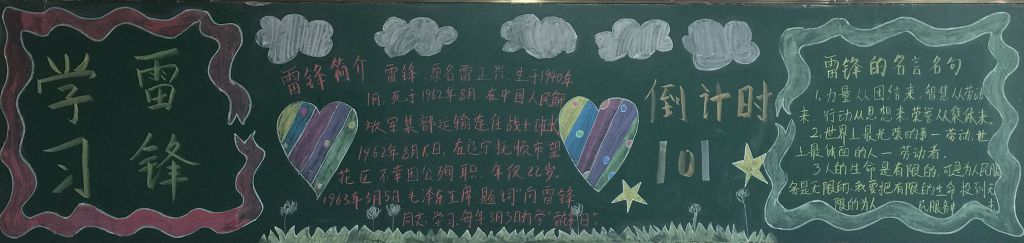 学习
雷锋
雷锋简介
雷锋，原名雷正兴，生于1940年
1月，死于1962年8月，在中国人民解
放军某部运输连任战士班长
1962年8月15日，在辽宁抚顺市望
花区不幸因公殉职，年仅22岁。
1963年3月5日毛泽东主席题词"向雷锋
同志学习，每年3月5日为学"雷锋日"
倒计时
101
雷锋的名言名句
1、力量从团结来，智慧从劳动
来，行动从思想来，荣誉从集体来。
2、世界上最光荣的事—劳动，世
上最体面的人—劳动者。
3、人的生命是有限的，可是为人民服
务是无限的，我要把有限的生命投到无
限的为人民服务